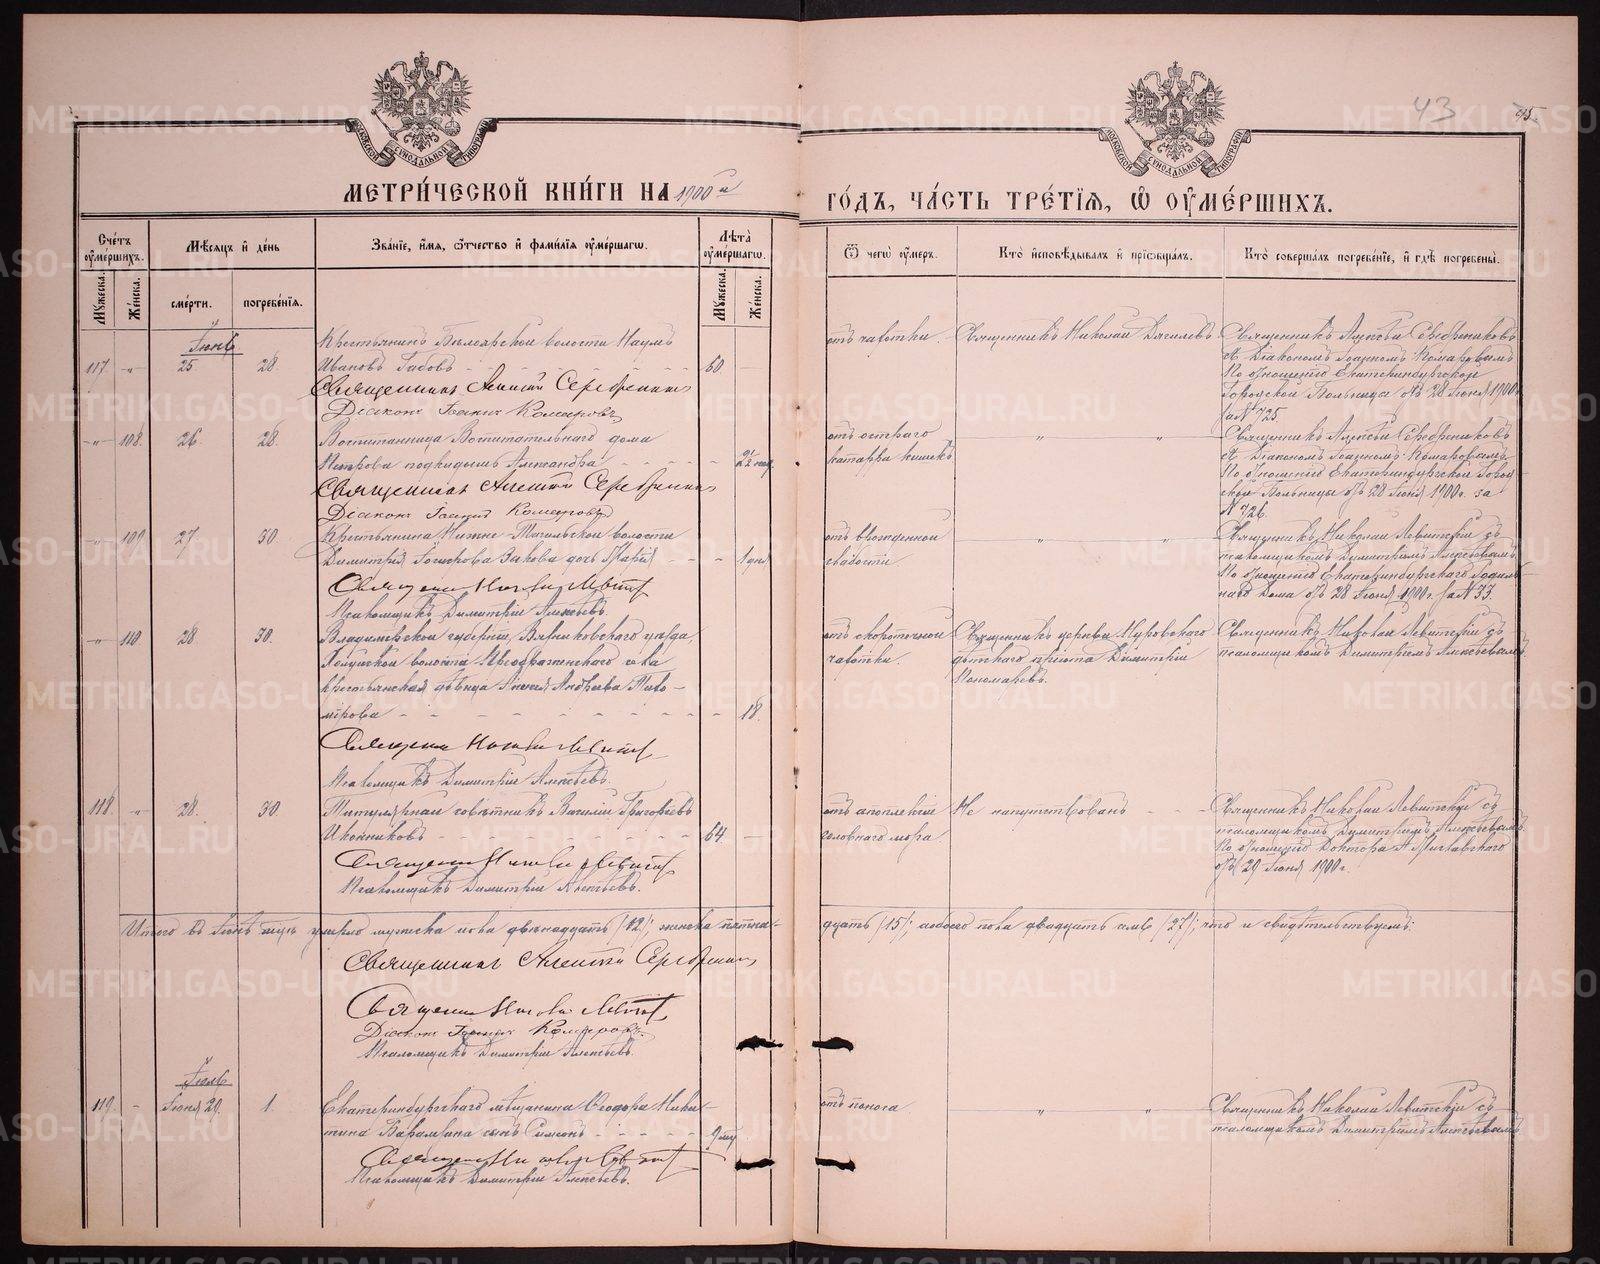 43
МЕТРИ́ЧЕСКОЙ КНИ́ГИ НА 1900й
ГО́ДЪ, ЧА́СТЬ ТРЕ́ТІѦ, Ѡ҆ ОУ҆МЕ́РШИХЪ.
МОСКОВСКОЙ СѴНОДАЛЬНОЙ ТИПОГРАФІИ
МОСКОВСКОЙ СѴНОДАЛЬНОЙ ТИПОГРАФІИ
Сче́тъ оу҆ме́ршихъ.
Мꙋ́жеска.
Же́нска.
Мѣ́сяцъ и҆ де́нь
сме́рти.
погребе́нїя.
Зва́нїе, и҆́мя, ѻ҆́тчество и҆ фами́лїя оу҆ме́ршагѡ.
Лѣ́та оу҆ме́ршагѡ.
Мꙋ́жеска.
Же́нска.
Ѿ чегѡ̀ оу҆́меръ.
Кто̀ и҆сповѣ́дывалъ и҆ прїѡбща́лъ.
Кто̀ соверша́лъ погребе́нїе, и҆ гдѣ̀ погребены̀.
Іюнь
117 -"- 25 28.
Крестьянинъ волости Наумъ
Ивановъ 60
Священникъ Алексій Серебренниковъ
Діаконъ Іоаннъ Комаровъ
отъ чахотки.
Священникъ Николай Дягилевъ
Священникъ Алексѣй Серебренниковъ
съ Діакономъ Іоанномъ Комаровымъ
По отношенію Екатеринбургской
Городской Больницы отъ 28 Іюня 1900г.
за № 725.
-"- 108. 26 28.
Воспитанница Воспитательнаго дома
подкидышъ Александра
Священникъ Алексій Серебренниковъ
Діаконъ Іоаннъ Комаровъ
отъ остраго
катарра кишекъ
" "
Священникъ Алексѣй Серебренниковъ
съ Діакономъ Іоанномъ Комаровымъ
По отношенію Екатеринбургской Город-
ской Больницы отъ 28 Іюня 1900г. за
№ 726.
" 109. 27 30.
Крестьянина Нижне-Тагильской волости
Димитрія дочь Марія 1 дня
Священникъ Николай Левитскій
Псаломщикъ Димитрій Алексѣевъ.
отъ врожденной
слабости
" "
Священникъ Николай Левитскій съ
псаломщикомъ Димитріемъ Алексѣевымъ
По отношенію Екатеринбургскаго Родиль-
наго Дома отъ 28 Іюня 1900г. за № 33.
" 110 28 30.
Владимірской губерніи, Вязниковскаго уѣзда,
Холуйской волости Преображенскаго села
крестьянская дѣвица Андреева Тихо-
мірова 18.
Священникъ Николай Левитскій
Псаломщикъ Димитрій Алексѣевъ.
отъ скоротечной
чахотки.
Священникъ церкви Нуровскаго
дѣтскаго пріюта Димитрій
Пономаревъ.
Священникъ Николай Левитскій съ
псаломщикомъ Димитріемъ Алексѣевымъ
118. -"- 28. 30.
Титулярный совѣтникъ Василій Григорьевъ
Иконниковъ 64
Священникъ Николай Левитскій
Псаломщикъ Димитрій Алексѣевъ.
отъ апоплексіи
головного мозга.
Не напутствованъ
Священникъ Николай Левитскій съ
псаломщикомъ Димитріемъ Алексѣевымъ.
По отношенію Доктора
отъ 29 Іюня 1900г.
Итого въ Іюнѣ мцѣ умерло мужеска пола двѣнадцать (12); женска пятна-
дцать (15); обоего пола двадцать семь (27); что и свидѣтельствуемъ:
Священникъ Алексій Серебренниковъ
Священникъ Николай Левитскій
Діаконъ Іоаннъ Комаровъ.
Псаломщикъ Димитрій Алексѣевъ.
Іюль
119. - Іюня 29. 1.
Екатеринбургскаго мѣщанина Ѳеодора Ники-
тина сынъ Симеонъ
Священникъ Николай Левитскій
Псаломщикъ Димитрій Алексѣевъ.
отъ поноса
" "
Священникъ Николай Левитскій съ
псаломщикомъ Димитріемъ Алексѣевымъ
METRIKI.GASO-URAL.RU